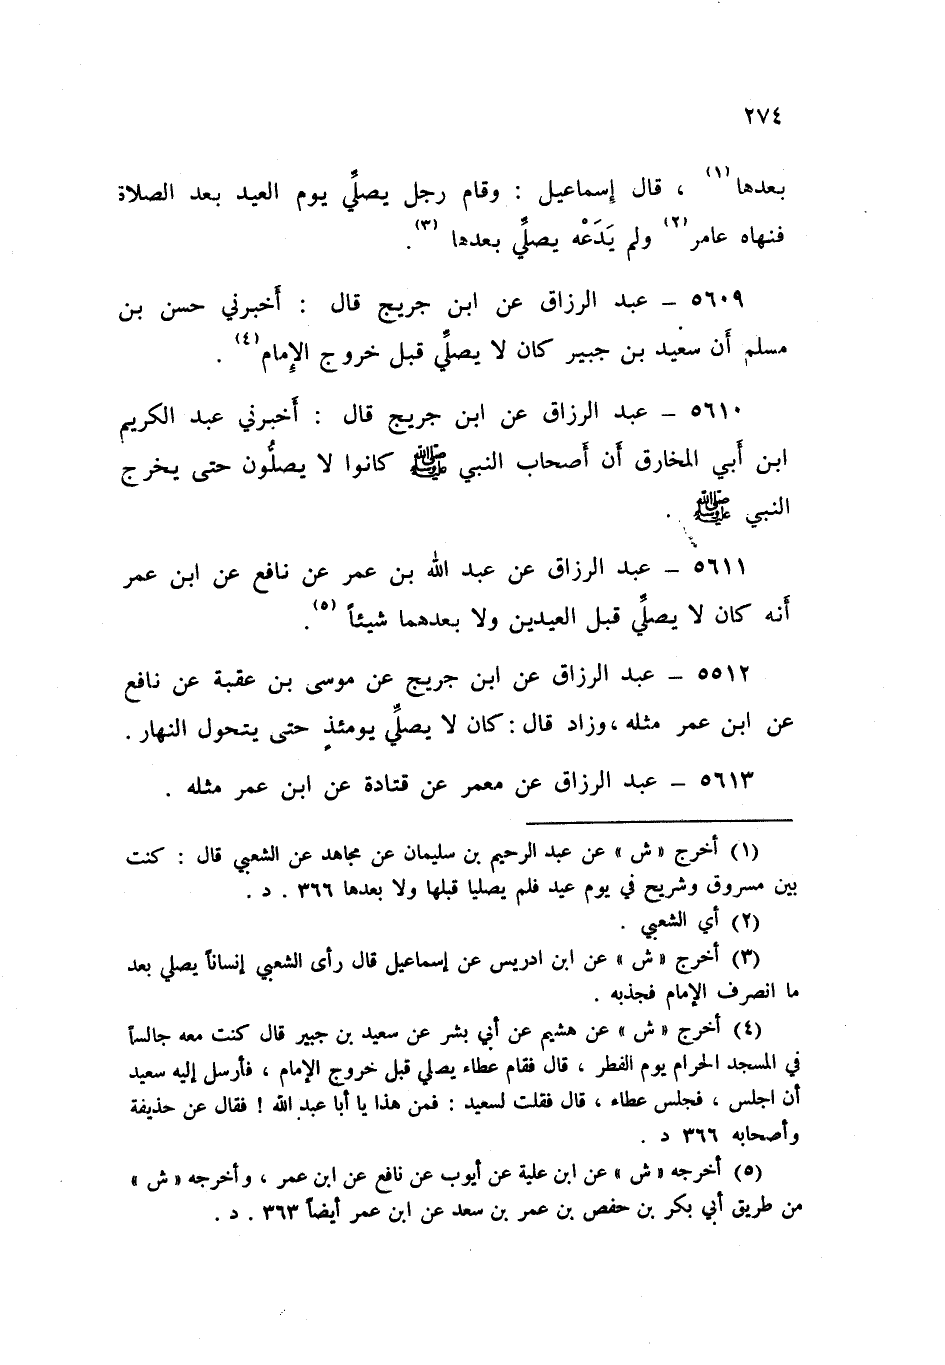 ٢٧٤
بعدها(١) ، قال إسماعيل : وقام رجل يصلِّي يوم العيد بعد الصلاة
فنهاه عامر(٢) ولم يَدَعْه يصلِّي بعدها (٣).
٥٦٠٩ – عبد الرزاق عن ابن جريج قال : أَخبرني حسن بن
مسلم أَن سعيد بن جبير كان لا يصلِّي قبل خروج الإِمام(٤) .
٥٦١٠ – عبد الرزاق عن ابن جريج قال : أَخبرني عبد الكريم
ابن أَبي المخارق أَن أَصحاب النبي ﷺ كانوا لا يصلُّون حتى يخرج
النبي ﷺ .
٥٦١١ – عبد الرزاق عن عبد الله بن عمر عن نافع عن ابن عمر
أَنه كان لا يصلِّي قبل العيدين ولا بعدهما شيئاً (٥).
٥٥١٢ – عبد الرزاق عن ابن جريج عن موسى بن عقبة عن نافع
عن ابن عمر مثله ، وزاد قال : كان لا يصلِّي يومئذٍ حتى يتحول النهار .
٥٦١٣ – عبد الرزاق عن معمر عن قتادة عن ابن عمر مثله .
(١) أخرج « ش » عن عبد الرحيم بن سليمان عن مجاهد عن الشعبي قال : كنت
بين مسروق وشريح في يوم عيد فلم يصليا قبلها ولا بعدها ٣٦٦ . د .
(٢) أي الشعبي .
(٣) أخرج « ش » عن ابن ادريس عن إسماعيل قال رأى الشعبي إنساناً يصلي بعد
ما انصرف الإمام فجذبه .
(٤) أخرج « ش » عن هشيم عن أبي بشر عن سعيد بن جبير قال كنت معه جالساً
في المسجد الحرام يوم الفطر ، قال فقام عطاء يصلي قبل خروج الإمام ، فأرسل إليه سعيد
أن اجلس ، فجلس عطاء ، قال فقلت لسعيد : فمن هذا يا أبا عبد الله ! فقال عن حذيفة
وأصحابه ٣٦٦ د .
(٥) أخرجه « ش » عن ابن علية عن أيوب عن نافع عن ابن عمر ، وأخرجه « ش »
من طريق أبي بكر بن حفص بن عمر بن سعد عن ابن عمر أيضاً ٣٦٣ . د .